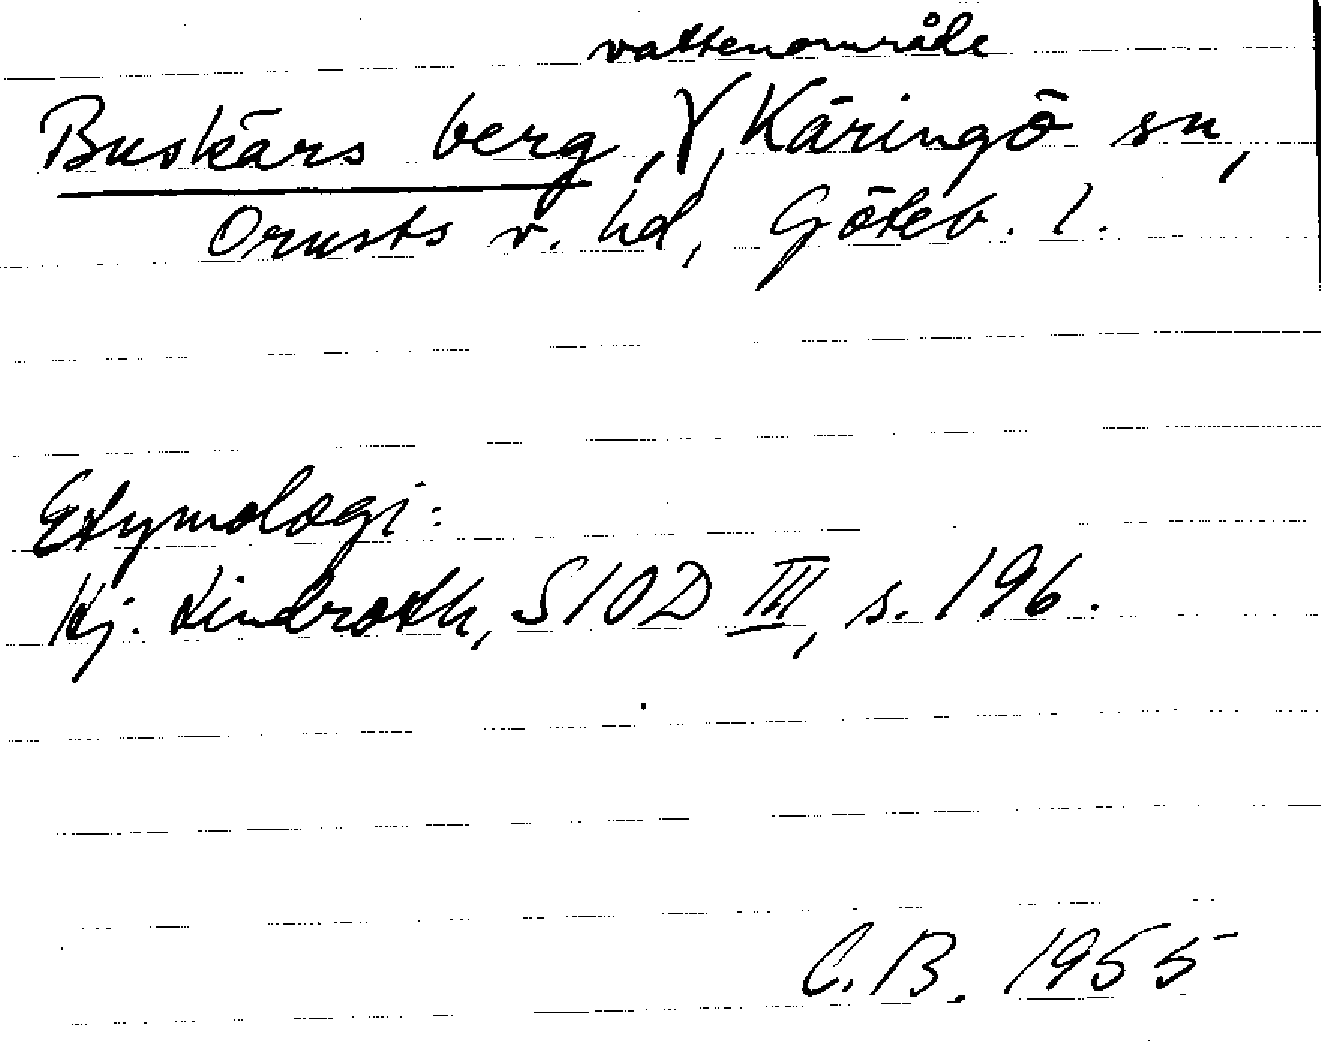 vattenområde
Buskärs berg, , Käringö sn,
Orusts v. hd, Göteb. l.
Etymologi:
Hj. Lindroth, SIOD III, s. 196.
C.B. 1955